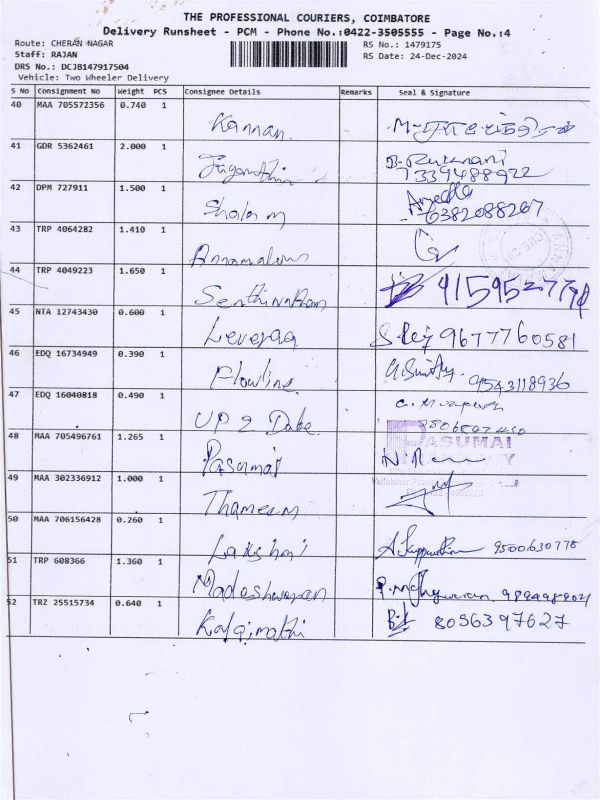 THE PROFESSIONAL COURIERS, COIMBATORE
Delivery Runsheet - PCM - Phone No.:0422-3505555 - Page No.:4
Route: CHERAN NAGAR
RS No.: 1479175
Staff: RAJAN
RS Date: 24-Dec-2024
DRS No.: DCJB147917504
Vehicle: Two Wheeler Delivery
S No Consignment No Weight PCS Consignee Details Remarks Seal & Signature
40 MAA 705572356 0.740 1
Kannan
41 GDR 5362461 2.000 1
Jaganathan B. Rukmani
7339488922
42 DPM 727911 1.500 1
Shalom
6382088267
43 TRP 4064282 1.410 1
Annamalai
44 TRP 4049223 1.650 1
Senthilnathan
45 NTA 12743430 0.600 1
Leveraa 9677760581
46 EDQ 16734949 0.390 1
Flowline 9543118936
47 EDQ 16040818 0.490 1
UP 2 Date
48 MAA 705496761 1.265 1
PASUMAI
Pasumai
49 MAA 302336912 1.000 1
Thameem
50 MAA 706156428 0.260 1
Lakshmi 9500630778
51 TRP 608366 1.360 1
Madeshwaran
52 TRZ 25515734 0.640 1
Kalaimathi 8056397627